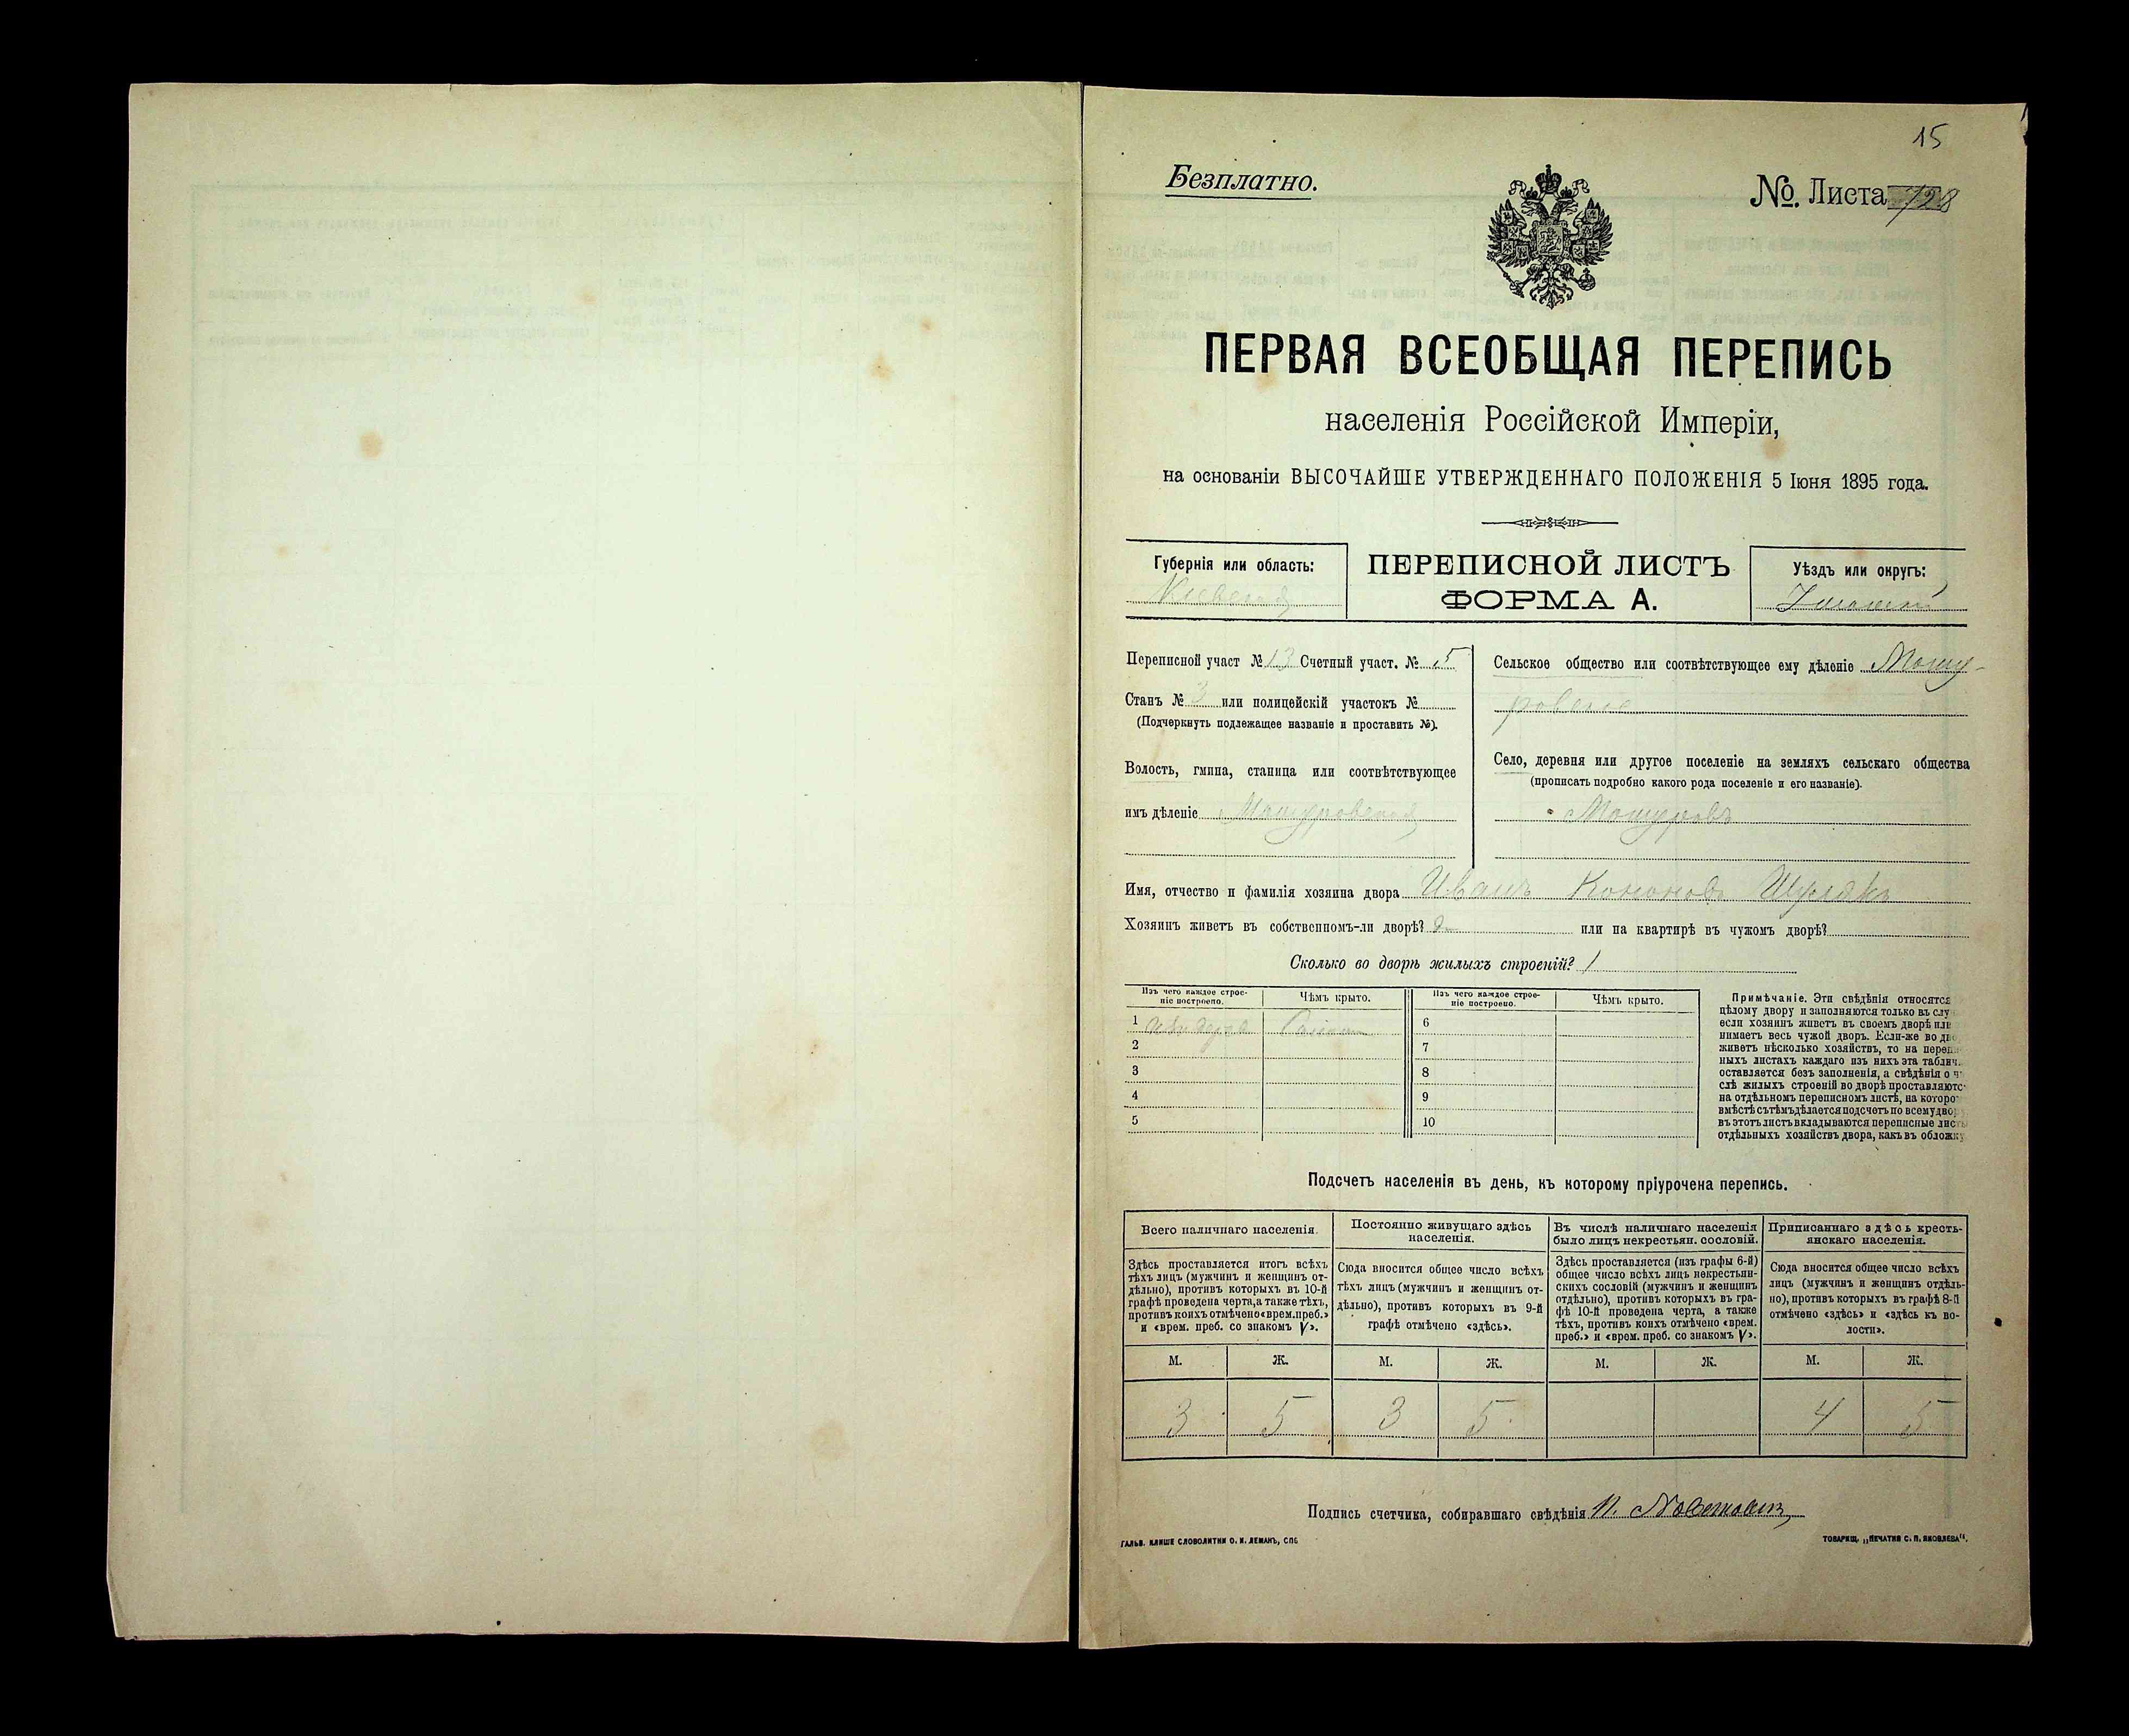 15
Безплатно.
№. Листа 128
ПЕРВАЯ ВСЕОБЩАЯ ПЕРЕПИСЬ
населенія Россійской Имперіи,
на основаніи ВЫСОЧАЙШЕ УТВЕРЖДЕННАГО ПОЛОЖЕНІЯ 5 Іюня 1895 года.
Губернія или область:
Кіевская
ПЕРЕПИСНОЙ ЛИСТЪ
ФОРМА А.
Уѣздъ или округъ:
Уманскій
Переписной участ № 13 Счетный участ. № 5
Станъ № 3 или полицейскій участокъ №
(Подчеркнуть подлежащее названіе и проставить №).
Волость, гмина, станица или соотвѣтствующее
имъ дѣленіе Машуровская
Сельское общество или соотвѣтствующее ему дѣленіе Машу-
ровское
Село, деревня или другое поселеніе на земляхъ сельскаго общества
(прописать подробно какого рода поселеніе и его названіе).
Машуровъ
Имя, отчество и фамилія хозяина двора Иванъ Кононовъ Шулякъ
Хозяинъ живетъ въ собственномъ-ли дворѣ? или на квартирѣ въ чужомъ дворѣ?
Сколько во дворѣ жилыхъ строеній? 1
Изъ чего каждое строе-
ніе построено.
Чѣмъ крыто.
Изъ чего каждое строе-
ніе построено.
Чѣмъ крыто.
1 изъ дерева Соломой
6
2
7
3
8
4
9
5
10
Примѣчаніе. Эти свѣдѣнія относятся
цѣлому двору и заполняются только въ слу
если хозяинъ живетъ въ своемъ дворѣ или
нимаетъ весь чужой дворъ. Если-же во дво
живетъ нѣсколько хозяйствъ, то на переп
ныхъ листахъ каждаго изъ нихъ эта таблич
оставляется безъ заполненія, а свѣдѣнія о ч
слѣ жилыхъ строеній во дворѣ проставляютс
на отдѣльномъ переписномъ листѣ, на которо
вмѣстѣ съ тѣмъ дѣлается подсчетъ по всему дво
въ этотъ листъ вкладываются переписные лист
отдѣльныхъ хозяйствъ двора, какъ въ обложку
Подсчетъ населенія въ день, къ которому пріурочена перепись.
Всего наличнаго населенія.
Здѣсь проставляется итогъ всѣхъ
тѣхъ лицъ (мужчинъ и женщинъ от-
дѣльно), противъ которыхъ въ 10-й
графѣ проведена черта, а также тѣхъ,
противъ коихъ отмѣчено «врем. преб.»
и «врем. преб. со знакомъ V».
Постоянно живущаго здѣсь
населенія.
Сюда вносится общее число всѣхъ
тѣхъ лицъ (мужчинъ и женщинъ от-
дѣльно), противъ которыхъ въ 9-й
графѣ отмѣчено «здѣсь».
Въ числѣ наличнаго населенія
было лицъ некрестьян. сословій.
Здѣсь проставляется (изъ графы 6-й)
общее число всѣхъ лицъ некрестьян-
скихъ сословій (мужчинъ и женщинъ
отдѣльно), противъ которыхъ въ гра-
фѣ 10-й проведена черта, а также
тѣхъ, противъ коихъ отмѣчено «врем.
преб.» и «врем. преб. со знакомъ V».
Приписаннаго здѣсь кресть-
янскаго населенія.
Сюда вносится общее число всѣхъ
лицъ (мужчинъ и женщинъ отдѣль-
но), противъ которыхъ въ графѣ 8-й
отмѣчено «здѣсь» и «здѣсь къ во-
лости».
М. Ж. М. Ж. М. Ж. М. Ж.
3 5 3 5 4 5
Подпись счетчика, собиравшаго свѣдѣнія
ГАЛЬВ. КЛИШЕ СЛОВОЛИТНИ О. И. ЛЕМАНЪ, СПБ
ТОВАРИЩ. „ПЕЧАТНЯ С. П. ЯКОВЛЕВА".